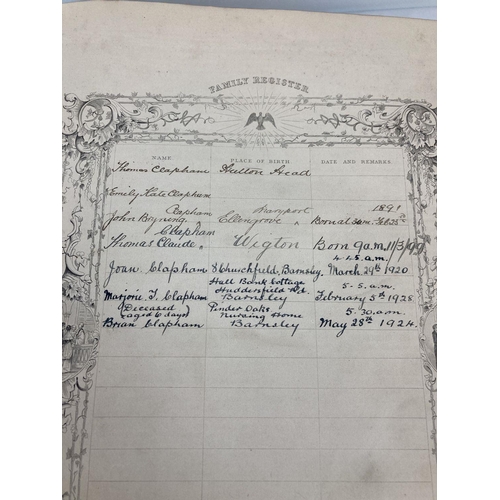 FAMILY REGISTER
NAME PLACE OF BIRTH DATE AND REMARKS
Thomas Clapham Hutton Head
Emily Kate Clapham
Clapham Maryport 1891
John Bryning " Ellengrove " Born at 3am Feb 25th
Clapham
Thomas Claude " Wigton Born 9 a.m. 11/3/97
4.45.a.m.
Joan Clapham 8 Churchfield, Barnsley March 29th 1920
Hall Bank Cottage 5-5.a.m.
Huddersfield Rd.
Marjorie T. Clapham Barnsley February 5th 1928
(Deceased Pinder Oaks 5.30.a.m.
aged 6 days) Nursing Home
Brian Clapham Barnsley May 28th 1924.